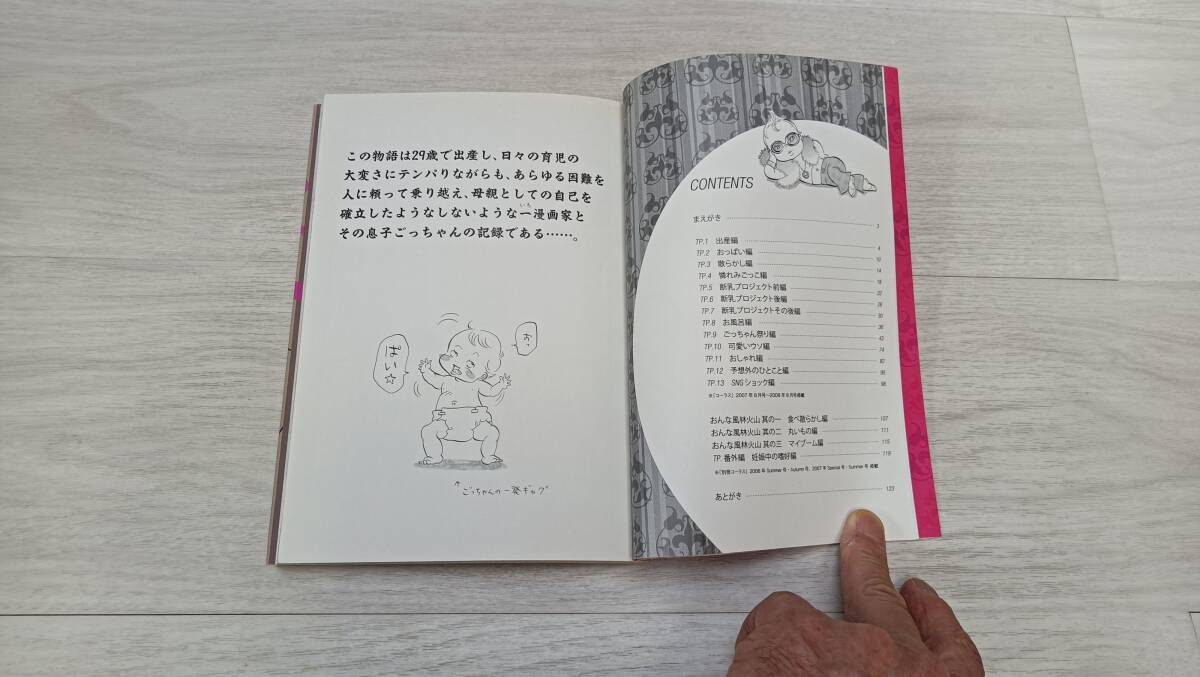 この物語は29歳で出産し、日々の育児の
大変さにテンパりながらも、あらゆる困難を
人に頼って乗り越え、母親としての自己を
確立したようなしないような一漫画家と
いち
その息子ごっちゃんの記録である……。
おっ
ぱい☆
↑ごっちゃんの一発ギャグ
CONTENTS
まえがき 3
TP.1 出産編 4
TP.2 おっぱい編 10
TP.3 散らかし編 14
TP.4 憐れみごっこ編 18
TP.5 断乳プロジェクト前編
TP.6 断乳プロジェクト後編
TP.7 断乳プロジェクトその後編 30
TP.8 お風呂編 36
TP.9 ごっちゃん祭り編
TP.10 可愛いウソ編 74
TP.11 おしゃれ編
TP.12 予想外のひとこと編
TP.13 SNGショック編 98
※「コーラス」2007年8月号～2008年8月号掲載
おんな風林火山 其の一 食べ散らかし編 107
おんな風林火山 其の二 丸いもの編 111
おんな風林火山 其の三 マイブーム編 115
TP.番外編 妊娠中の嗜好編 119
※「別冊コーラス」2006年Summer号・Autumn号、2007年Special号・Summer号 掲載
あとがき 123